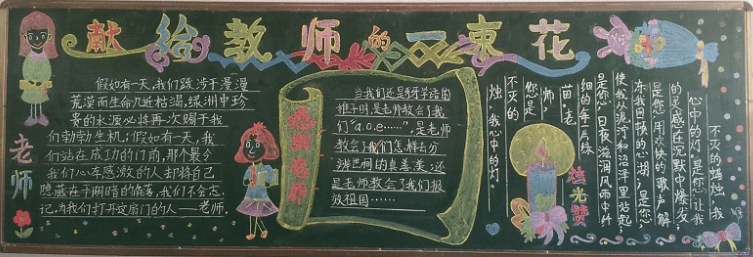 献给教师的一束花
老师
假如有一天，我们跋涉于漫漫
荒漠而生命几近枯竭，绿洲中珍
贵的水源必将再次赐于我
们勃勃生机；假如有一天，我
们站在成功的门前，那个最令
我们心存感激的人却将自己
隐藏在手到的角落，我们不会忘
记，为我们打开这扇门的人——老师。
感谢恩师
当我们还是牙牙学语的
稚子时，是老师教会了我
们“a.o.e……”，是老师
教会了我们怎样去分
辨世间的真善美；还
是老师教会了我们报
效祖国……
烛光赞
不灭的蜡烛，我
心中的灯，是您，让我
的灵感在沉默中爆发，
是您，用欢快的歌声解
冻我困顿的心湖；是您，
使我从泥泞和沼泽里站起；
是您，日夜滋润风雨中纤
细的每片绿
苗。老
师，
您是
不灭的
烛，我心中的灯。